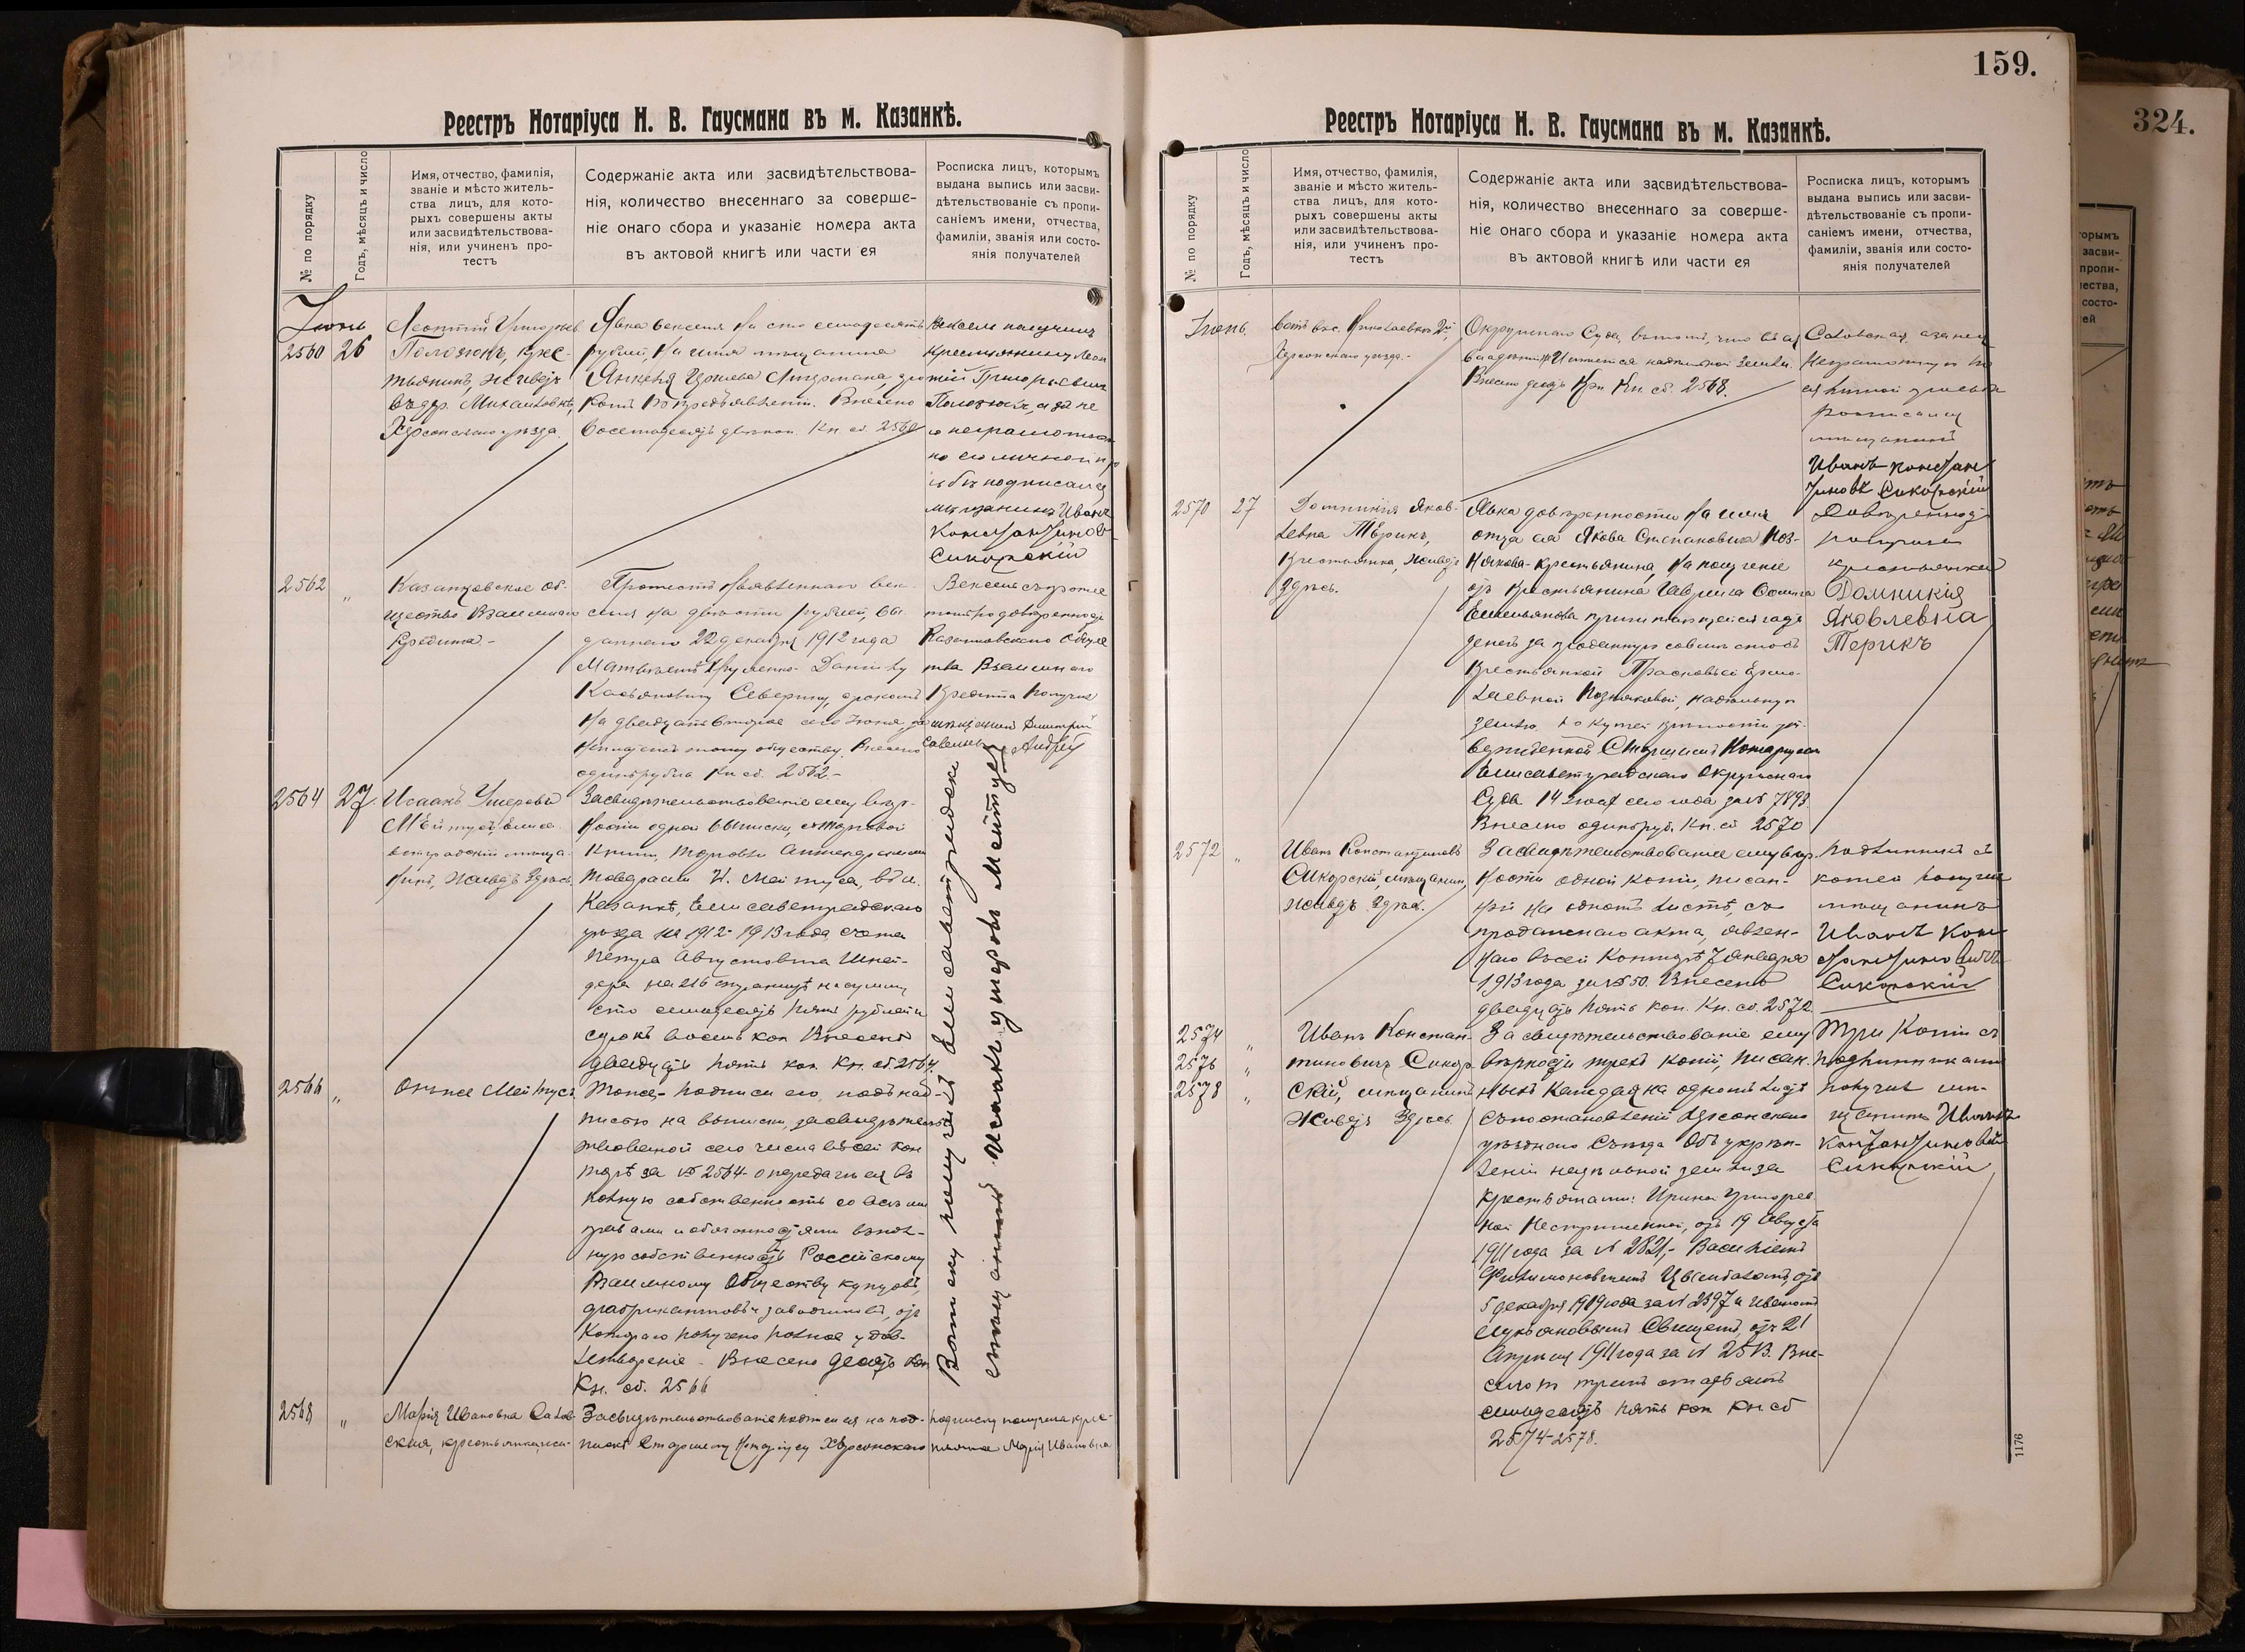 Реестръ Нотаріуса Н. В. Гаусмана въ м. Казанкѣ.
№ по порядку
Годъ, мѣсяцъ и число
Имя, отчество, фамилія,
званіе и мѣсто житель-
ства лицъ, для кото-
рыхъ совершены акты
или засвидѣтельствова-
нія, или учиненъ про-
тестъ
Содержаніе акта или засвидѣтельствова-
нія, количество внесеннаго за соверше-
ніе онаго сбора и указаніе номера акта
въ актовой книгѣ или части ея
Росписка лицъ, которымъ
выдана выпись или засви-
дѣтельствованіе съ пропи-
саніемъ имени, отчества,
фамиліи, званія или состо-
янія получателей
Іюнь
2560 26
Леонтій Григорьев
крес-
тьянинъ, живетъ
въ дер. Михайловкѣ,
Херсонскаго уѣзда.
Явка векселя на сто семьдесятъ
рублей, на имя мѣщанина
по предъявленіи. Внесено
восемьдесятъ двѣ коп. Кн. сб. 2560
Вексель получилъ
крестьянинъ Леон
тій Григорьевичъ
а за не
го неграмотнаго
по его личной про
сьбѣ подписался
мѣщанинъ Иванъ
Константинов
Сикорскій
2562 "
Казанковское Об-
щество Взаимнаго
Кредита.-
Протестъ неявленнаго век-
селя на двѣсти рублей, вы-
даннаго 22 декабря 1912 года
Касьяновичу Северину, срокомъ
на двадцать второе сего Іюня,
тому обществу. Внесено
одинъ рубль Кн. сб. 2562.-
Вексель съ проте
стомъ по довѣренности
Казанковскаго Общес
тва Взаимнаго
Кредита получилъ
мѣщанинъ Дмитрій
Андрей
2564 27.
Исаакъ Умеровъ
Мейтусъ, Елиса
ветградскій мѣща-
нинъ, живетъ здѣсь.
Засвидѣтельствованіе ему вѣр-
ности одной выписки, изъ торговой
книги, торговли
товарами И. Мейтуса, въ м.
Казанкѣ, Елисаветградскаго
уѣзда на 1912-1913 года, счета
Петра Августовича Шней-
дера на 216 страницѣ на сумму
сто семьдесятъ пять рублей и
сорокъ восемь коп. Внесено
двадцать пять коп. Кн. сб. 2564.
Выписку получилъ Елисаветградскій
мѣщанинъ Исаакъ Умеровъ Мейтусъ
2566 "
Онъ же Мейтусъ
Тоже- подписи его, подъ над-
писью на выписки, засвидѣтель
ствованной сего числа въ сей кон
торѣ за № 2564 о передачѣ ея въ
полную собственность со всѣми
правами и обязанностями въ пол-
ную собственность Россійскому
Взаимному Обществу купцовъ,
фабрикантовъ и заводчиковъ, отъ
котораго получено полное удов-
летвореніе - Внесено десять коп
Кн. сб. 2566
2568 "
Марія Ивановна Садов-
ская, крестьянка,
Засвидѣтельствованіе подписи ея на под-
пискѣ Старшему Нотаріусу Херсонскаго
подписку получила крес-
тьянка Марія Ивановна
159.
Реестръ Нотаріуса Н. В. Гаусмана въ м. Казанкѣ.
№ по порядку
Годъ, мѣсяцъ и число
Имя, отчество, фамилія,
званіе и мѣсто житель-
ства лицъ, для кото-
рыхъ совершены акты
или засвидѣтельствова-
нія, или учиненъ про-
тестъ
Содержаніе акта или засвидѣтельствова-
нія, количество внесеннаго за соверше-
ніе онаго сбора и указаніе номера акта
въ актовой книгѣ или части ея
Росписка лицъ, которымъ
выдана выпись или засви-
дѣтельствованіе съ пропи-
саніемъ имени, отчества,
фамиліи, званія или состо-
янія получателей
Іюнь.
Николаевкѣ 2й,
Херсонскаго уѣзда.-
Окружнаго Суда, въ томъ, что въ ея
надѣльной земли.
Внесено десять коп. Кн. сб. 2568.
Садовская, а за нея
неграмотную по
ея личной просьбѣ
росписался
мѣщанинъ
Иванъ Констан
тиновъ Сикорскій
2570 27
Домникія Яков-
левна Терикъ,
крестьянка, живетъ
здѣсь.
Явка довѣренности на имя
отца ея Якова Степановича Поз-
някова-крестьянина, на полученіе
отъ крестьянина Гавріила
Емельянова причитающейся
денегъ за проданную совмѣстно съ
крестьянкой Прасковьей Ермо-
лаевной Позняковой, надѣльную
землю по купчей крѣпости ут-
вержденной Старшимъ Нотаріусомъ
Елисаветградскаго Окружнаго
Суда 14 Мая сего года за № 7893.
Внесено одинъ руб. Кн. сб. 2570
Довѣренность
получила
крестьянка
Домникія
Яковлевна
Терикъ
2572 "
Иванъ Константиновъ
Сикорскій, мѣщанинъ,
живетъ здѣсь.
Засвидѣтельствованіе ему вѣр-
ности одной копіи, писан-
ной на одномъ листѣ, съ
продажнаго акта, явлен-
наго въ сей конторѣ 7 января
1913 года за № 50. Внесено
двадцать пять коп. Кн. сб. 2572
Подлинникъ съ
копіей получилъ
мѣщанинъ
Иванъ Кон
стантиновичъ
Сикорскій
2574 "
2576 "
2578 "
Иванъ Констан-
тиновичъ Сикор-
скій, мѣщанинъ
живетъ здѣсь.
Засвидѣтельствованіе ему
вѣрности трехъ копій, писан-
ныхъ каждая на одномъ листѣ
съ постановленій Херсонскаго
уѣзднаго Съѣзда объ укрѣп-
леніи надѣльной земли за
крестьянами: Ириной Григорьев
ной отъ 19 Августа
1911 года за № 2821,- Василіемъ
Филимоновичемъ Цымбаломъ, отъ
5 декабря 1909 года за № 2397 и Иваномъ
Лукьяновымъ отъ 21
Апрѣля 1911 года за № 2513. Вне-
сено по тремъ отдѣламъ
семьдесятъ пять коп Кн сб
2574-2578.
Три копіи съ
подлинниками
получилъ мѣ-
щанинъ Иванъ
Константиновичъ
Сикорскій
1176
324.